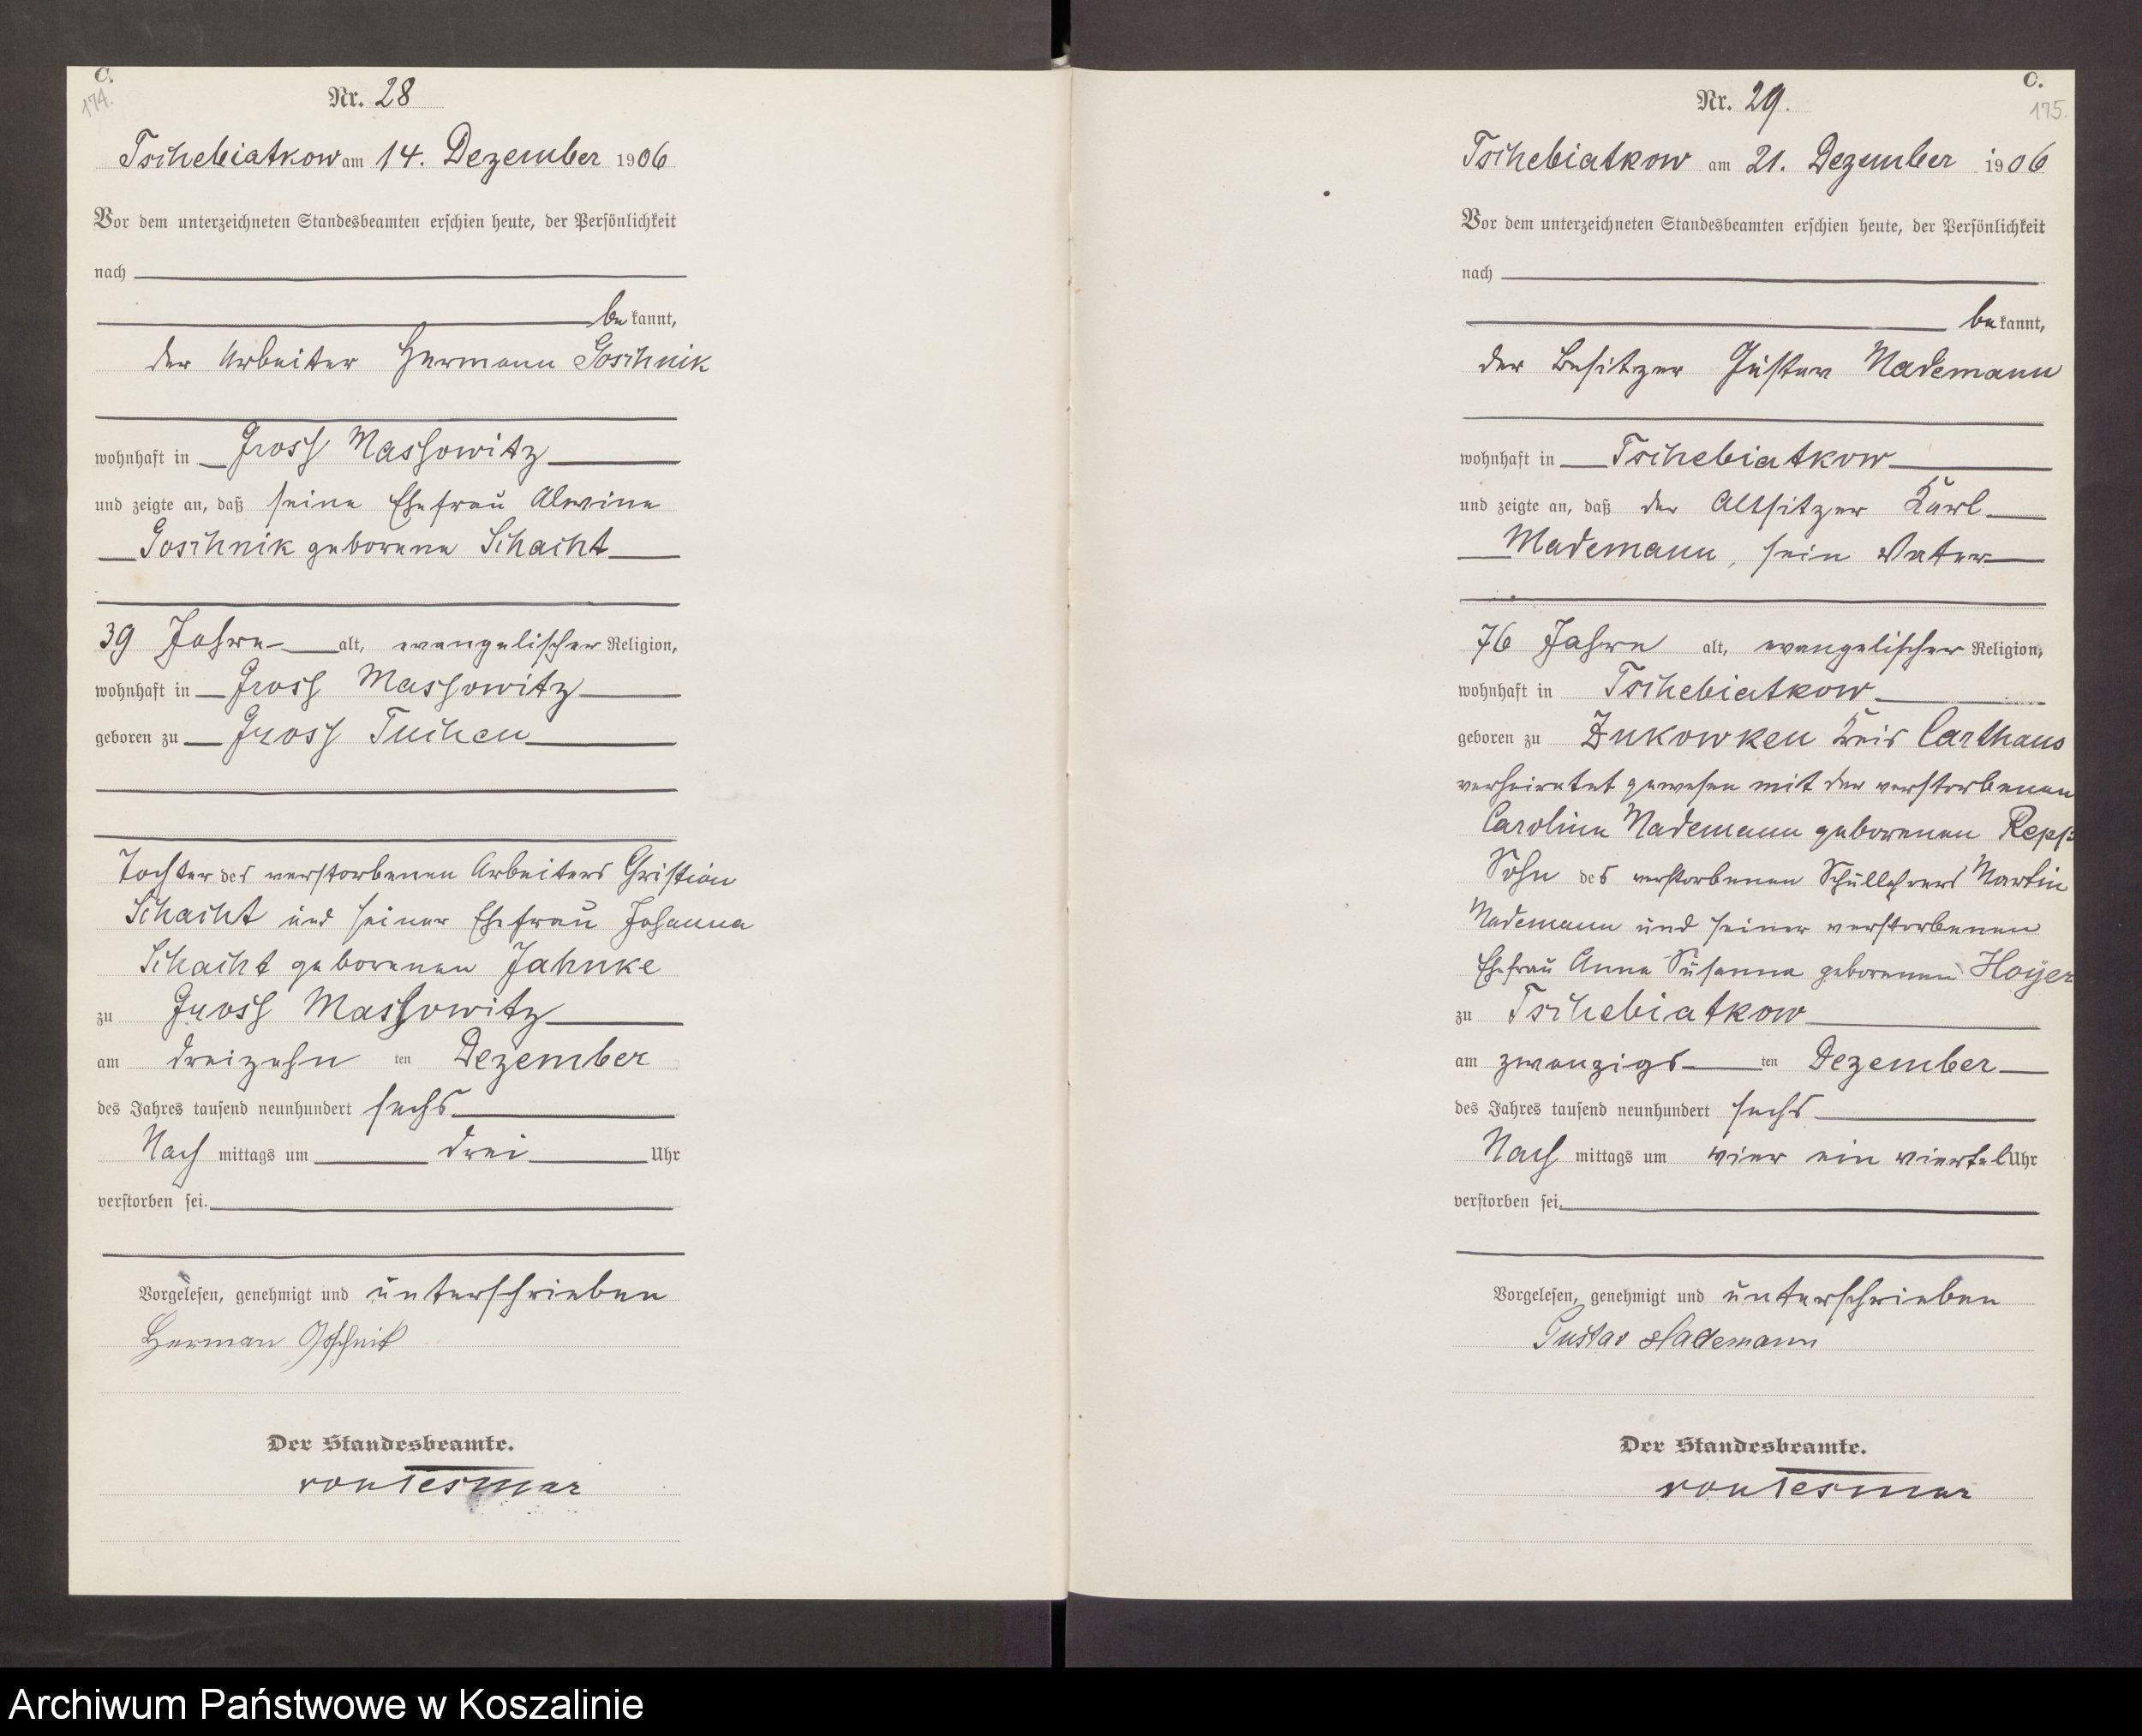 C.
174.
Nr. 28
Tschebiatkow am 14. Dezember 1906
Vor dem unterzeichneten Standesbeamten erschien heute, der Persönlichkeit
nach
bekannt,
der Arbeiter Hermann Goschnik
wohnhaft in Gross Massowitz
und zeigte an, daß seine Ehefrau Alwine
Goschnik geborene Schacht
39 Jahre alt, evangelischer Religion,
wohnhaft in Gross Massowitz
geboren zu Gross Tuchen
Tochter des verstorbenen Arbeiters Christian
Schacht und seiner Ehefrau Johanna
Schacht geborenen Jahnke
zu Gross Massowitz
am dreizehn ten Dezember
des Jahres tausend neunhundert sechs
Nach mittags um drei Uhr
verstorben sei.
Vorgelesen, genehmigt und unterschrieben
Herman Goschnik
Der Standesbeamte.
von Tesmar
C.
175.
Nr. 29.
Tschebiatkow am 21. Dezember 1906
Vor dem unterzeichneten Standesbeamten erschien heute, der Persönlichkeit
nach
bekannt,
der Besitzer Gustav Mademann
wohnhaft in Tschebiatkow
und zeigte an, daß der Altsitzer Karl
Mademann, sein Vater
76 Jahre alt, evangelischer Religion,
wohnhaft in Tschebiatkow
geboren zu Zukowken Kreis Carthaus
verheiratet gewesen mit der verstorbenen
Caroline Mademann geborenen
Sohn des verstorbenen Schullehrers Martin
Mademann und seiner verstorbenen
Ehefrau Anna Susanna geborenen Hoyer
zu Tschebiatkow
am zwanzigs ten Dezember
des Jahres tausend neunhundert sechs
Nach mittags um vier ein viertel Uhr
verstorben sei.
Vorgelesen, genehmigt und unterschrieben
Gustav Mademann
Der Standesbeamte.
von Tesmar
Archiwum Państwowe w Koszalinie